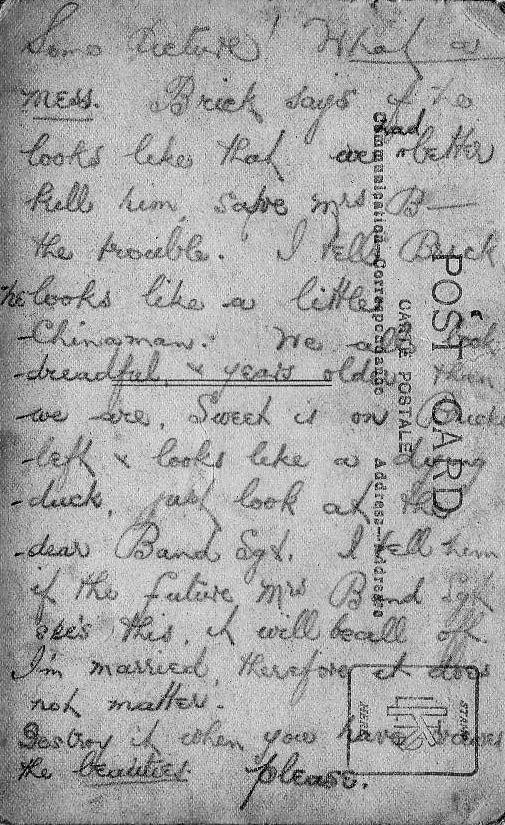 Some Picture! What a
mess. Brick says if he
looks like that we had better
kill him, save Mrs B—
the trouble. I tell Brick
he looks like a little
Chinaman. We all look
dreadful, & years older than
we are. Sweet is on Bricks
left & looks like a dying
duck, just look at the
dear Band Sgt. I tell him
if the future Mrs Band Sgt
see's this, it will be all off.
I'm married, therefore it does
not matter.
Destroy it when you have
the beauties please.
POST CARD
CARTE POSTALE
Communication—Correspondance
Address—Adresse
STAMP
HERE